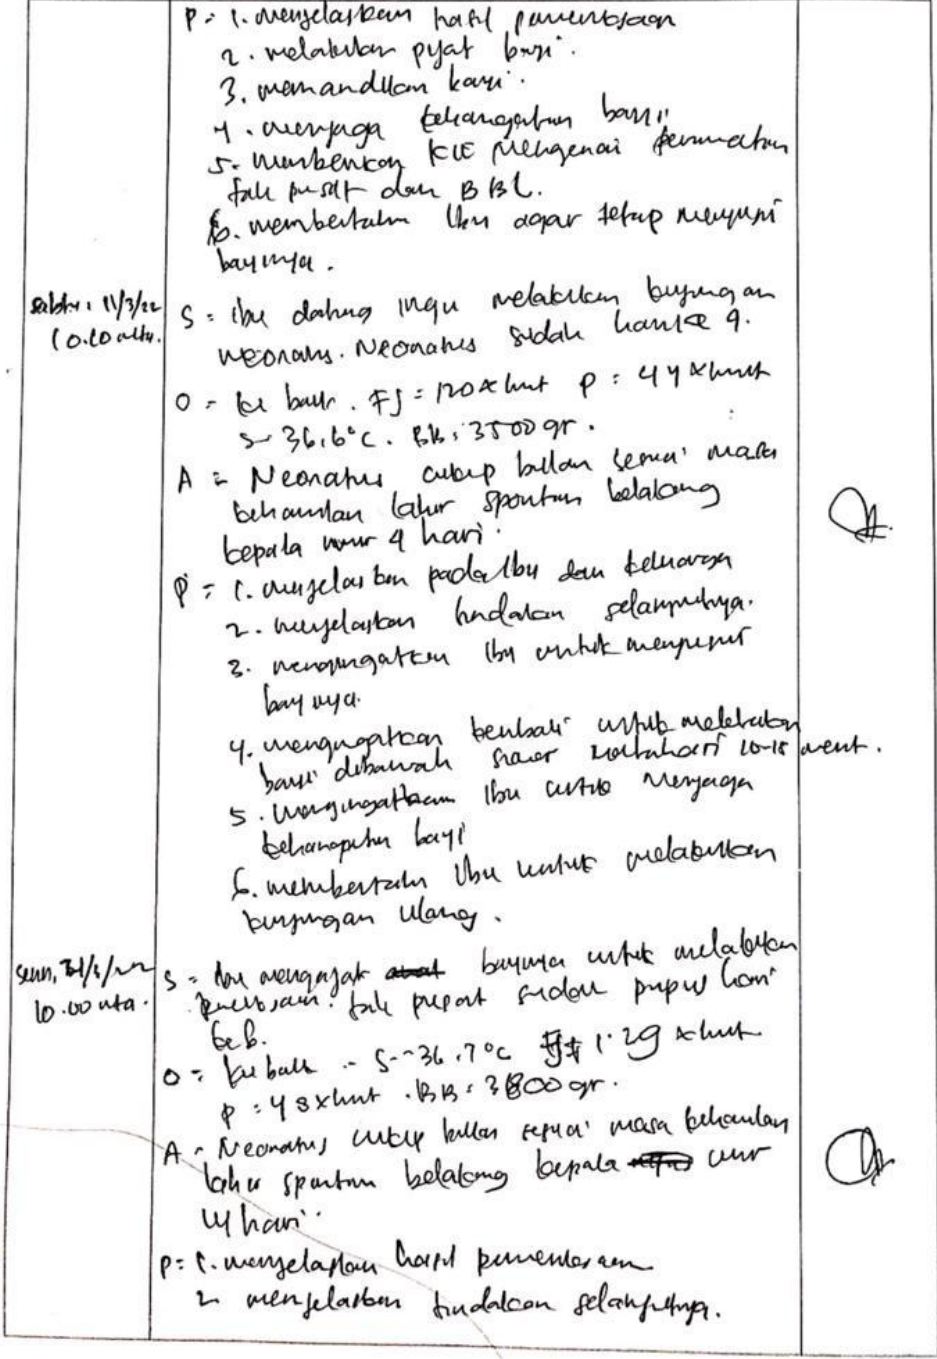 P = 1. menjelaskan hasil pemeriksaan
2. melakukan pijat bayi.
3. memandikan bayi.
4. menjaga kehangatan bayi
5. memberikan KIE mengenai perawatan
tali pusat dan BBL.
6. memberitahu Ibu agar tetap menyusui
bayinya.
sabtu, 11/3/22
10.10 wita.
S = ibu datang ingin melakukan kunjungan
neonatus. Neonatus sudah hari ke 4.
O = ku baik. FJ = 120 x/mnt P = 44 x/mnt
S = 36,6°C. BB: 3500 gr.
A = Neonatus cukup bulan sesuai masa
kehamilan lahir spontan belakang
kepala umur 4 hari.
P = 1. menjelaskan pada Ibu dan keluarga
2. menjelaskan tindakan selanjutnya.
3. mengingatkan Ibu untuk menyusui
bayinya.
4. mengingatkan kembali untuk meletakan
bayi dibawah sinar matahari 10-15 menit.
5. mengingatkan Ibu untuk menjaga
kehangatan bayi
6. memberitahu Ibu untuk melakukan
kunjungan ulang.
senin,
10.00 wita.
S = ibu mengajak bayinya untuk melakukan
pemeriksaan. tali pusat sudah pupus hari
ke 6.
O = ku baik - S = 36,7°C 129 x/mnt
P = 48 x/mnt. BB: 3800 gr.
A = Neonatus cukup bulan sesuai masa kehamilan
lahir spontan belakang kepala umur
hari
P = 1. menjelaskan hasil pemeriksaan
2. menjelaskan tindakan selanjutnya.